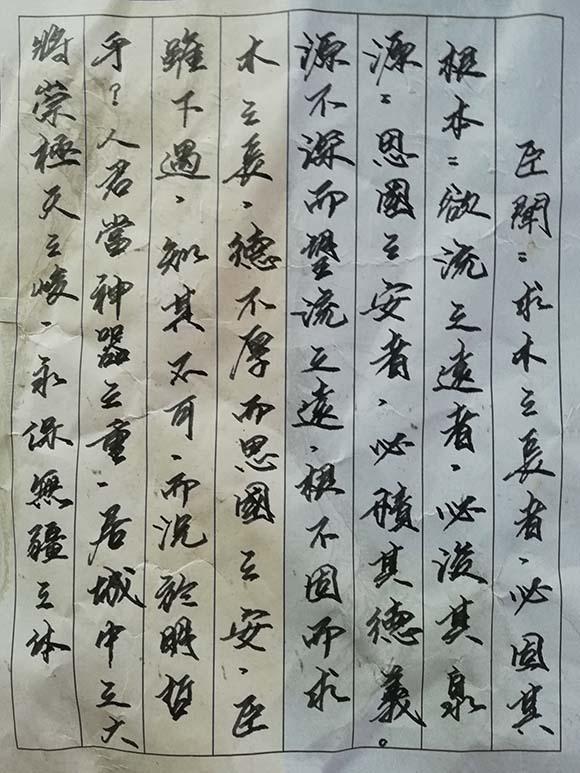 臣聞：求木之長者，必固其
根本：欲流之遠者，必浚其泉
源：思國之安者，必積其德義。
源不深而望流之遠，根不固而求
木之長，德不厚而思國之安，臣
雖下遇，知其不可，而況於明哲
乎？人君當神器之重，居城中之大
將崇極天之峻，永保無疆之休